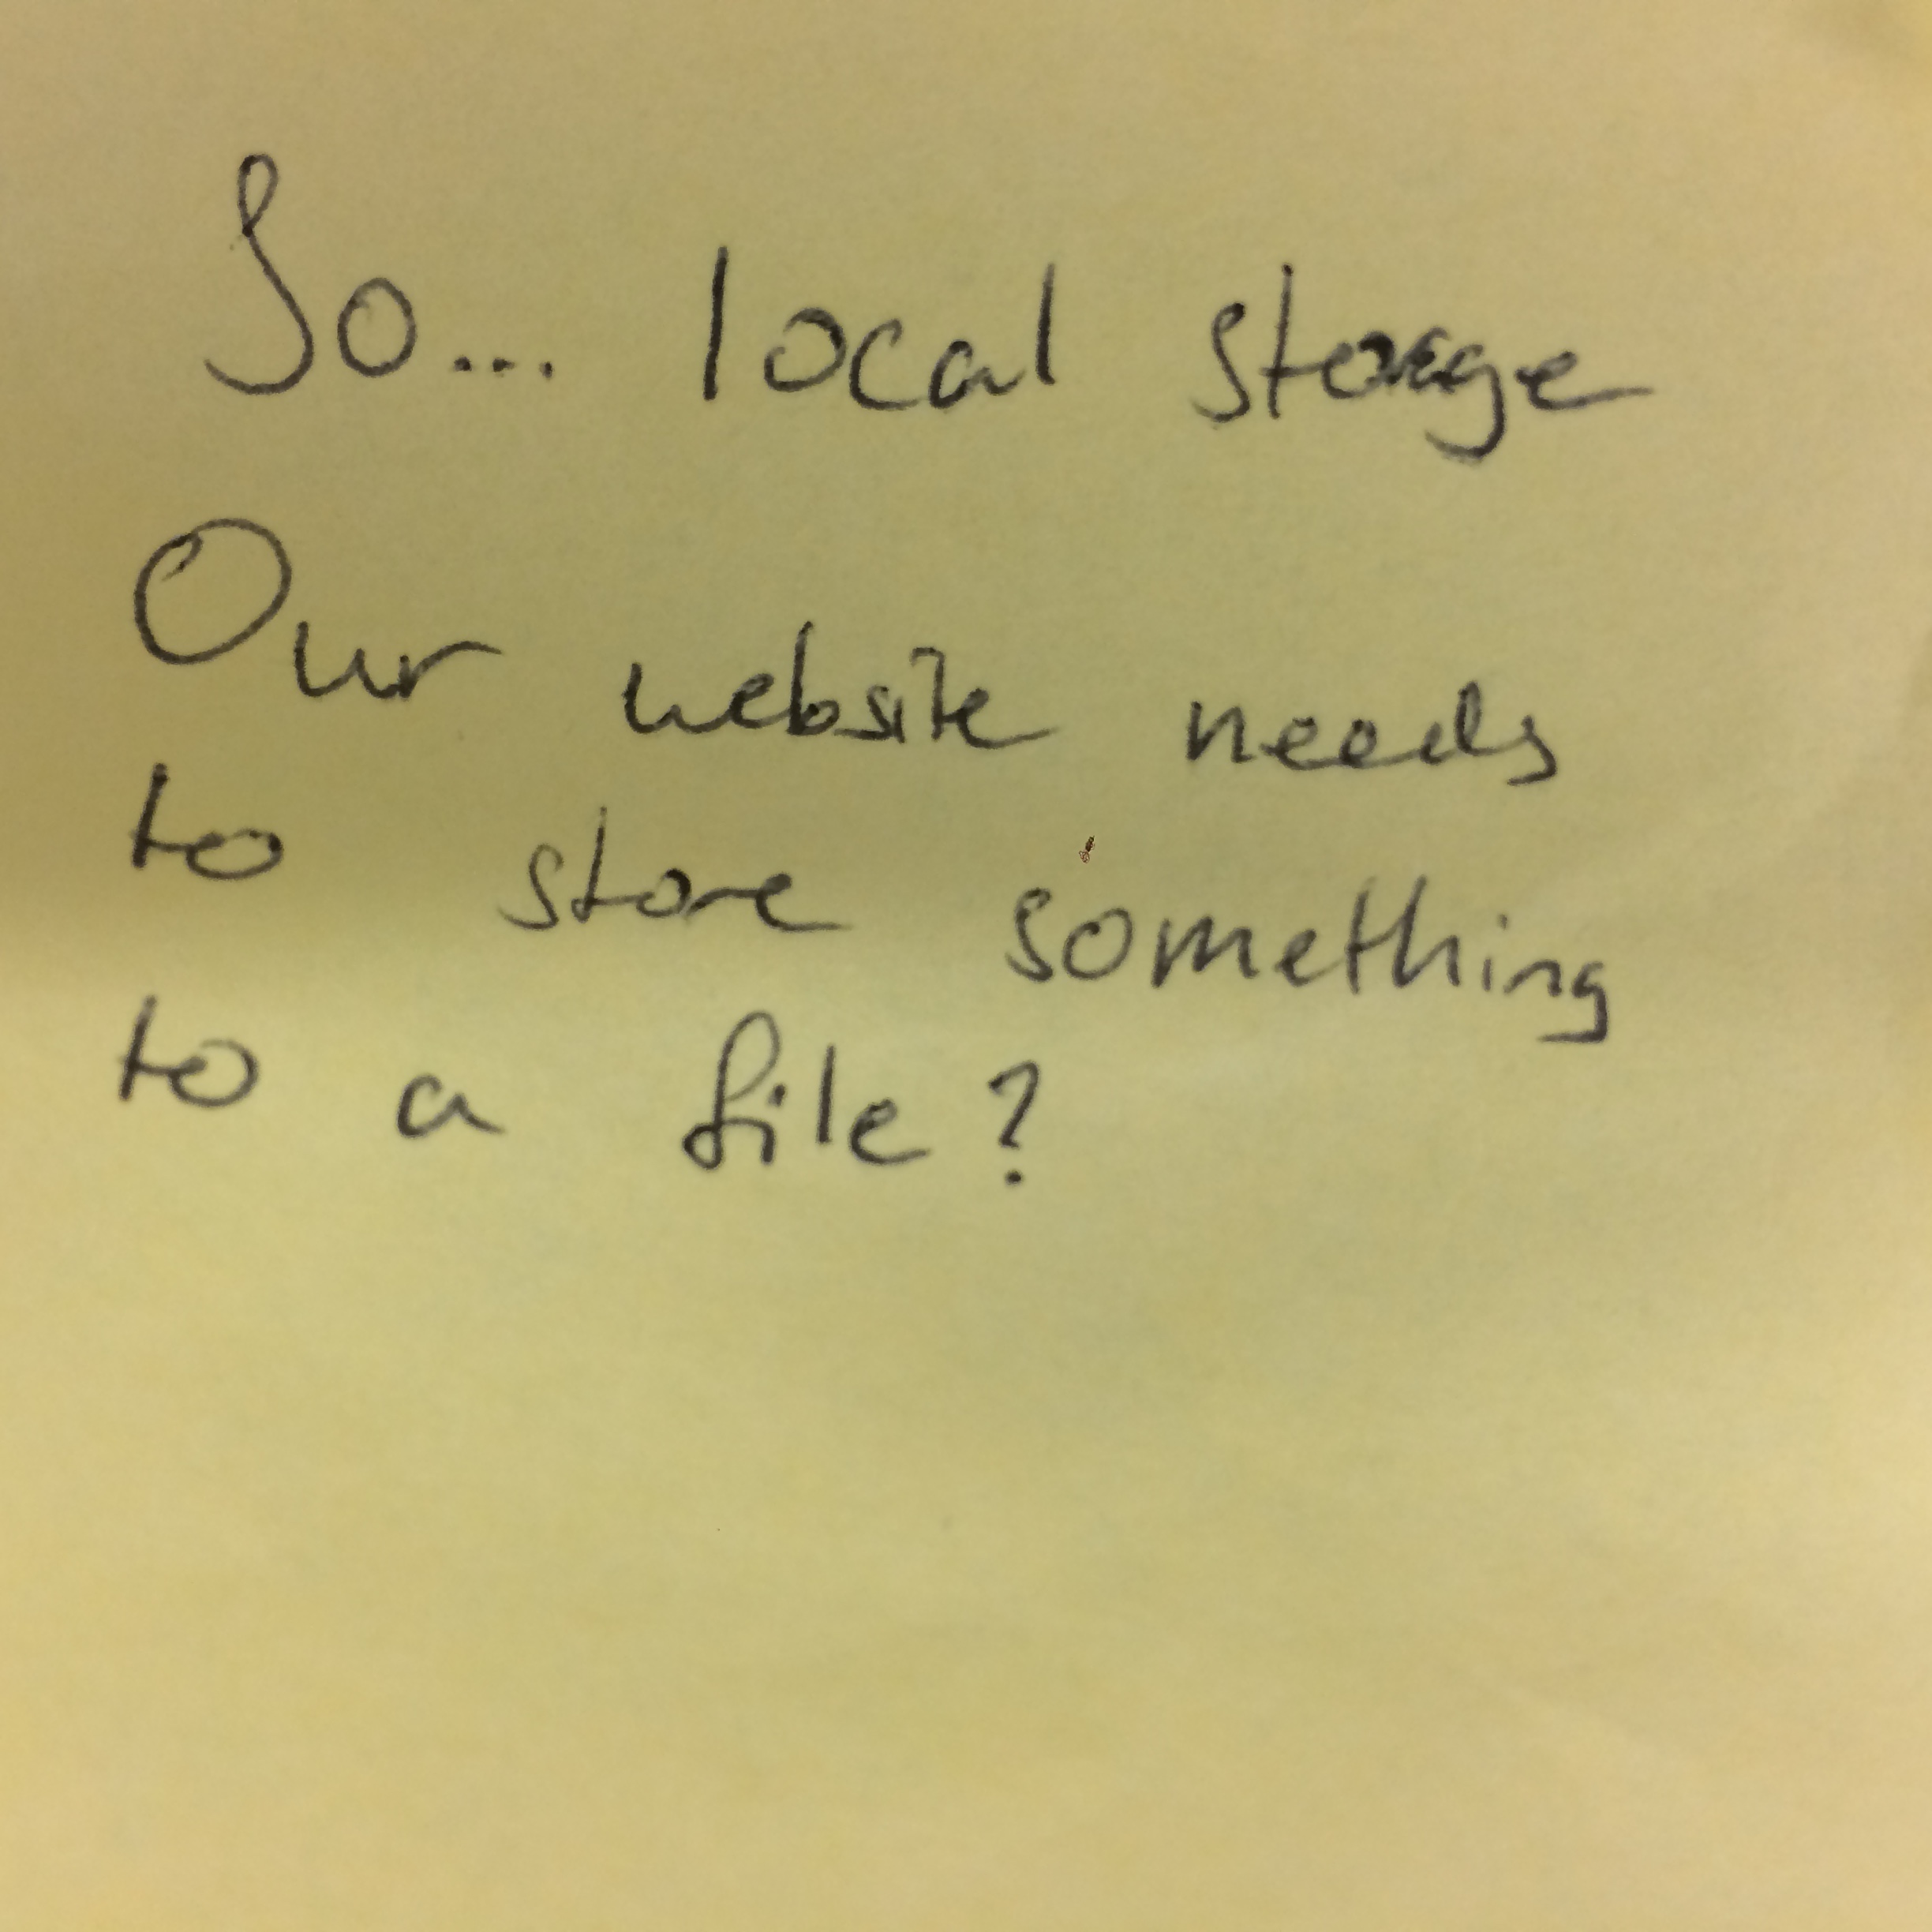 So... local storage
Our website needs
to store something
to a file?